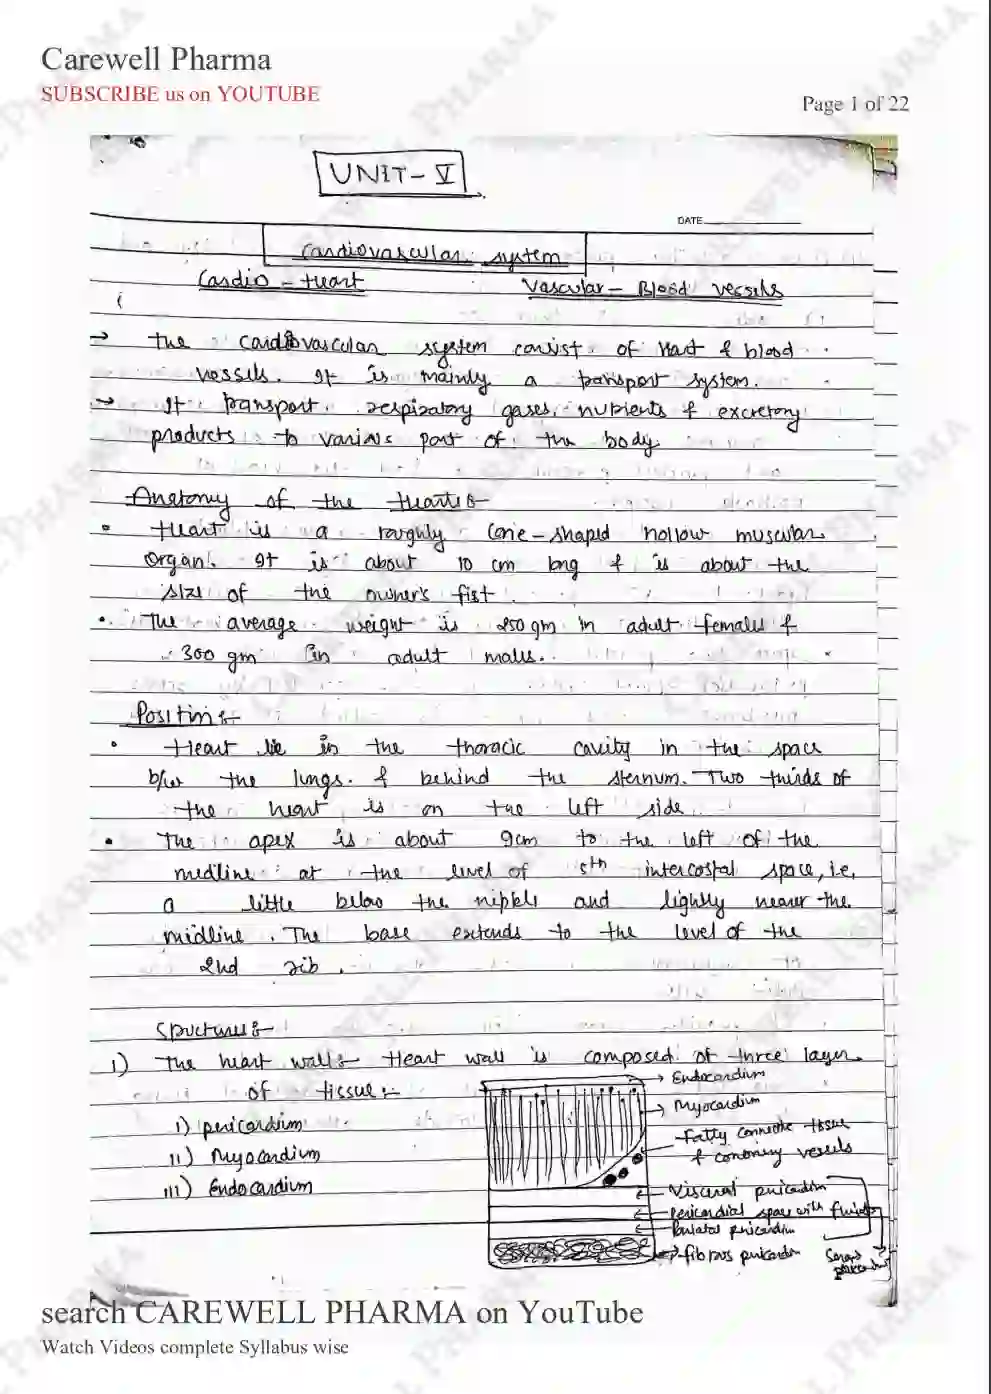 Carewell Pharma
SUBSCRIBE us on YOUTUBE
Page 1 of 22
UNIT - V
DATE
Cardiovascular system
Cardio - Heart
Vascular - Blood vessels
→ The cardiovascular system consist of Heart & blood
vessels. It is mainly a transport system.
→ It transport respiratory gases, nutrients & excretory
products to various part of the body
Anatomy of the Heart:-
• Heart is a roughly cone-shaped hollow muscular
organ. It is about 10 cm long & is about the
size of the owner's fist.
• The average weight is 250 gm in adult females &
300 gm in adult males.
Position:-
• Heart lie in the thoracic cavity in the space
b/w the lungs & behind the sternum. Two thirds of
the heart is on the left side
• The apex is about 9cm to the left of the
midline at the level of 5th intercostal space, i.e,
a little below the nipple and lightly nearer the
midline. The base extends to the level of the
2nd rib.
Structures:-
1) The heart wall:- Heart wall is composed of three layer
of tissue:-
i) pericardium
ii) Myocardium
iii) Endocardium
Endocardium
Myocardium
Fatty connective tissue
& coronary vessels
Visceral pericardium
Pericardial space with fluid
Parietal pericardium
fibrous pericardium
Serous
pericardium
search CAREWELL PHARMA on YouTube
Watch Videos complete Syllabus wise